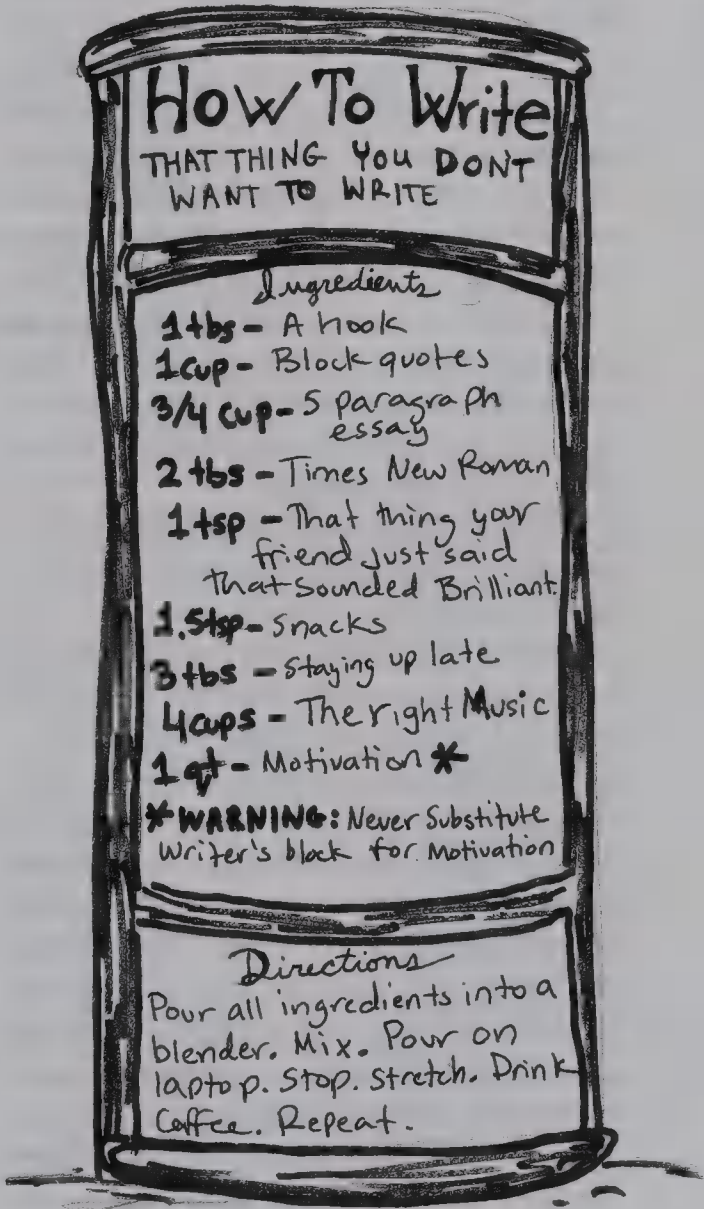 How To Write
THAT THING YOU DON'T
WANT TO WRITE
Ingredients
1 tbs - A hook
1 cup - Block quotes
3/4 cup - 5 paragraph
essay
2 tbs - Times New Roman
1 tsp - That thing your
friend just said
that sounded Brilliant.
1.5 tsp - Snacks
3 tbs - Staying up late
4 cups - The right Music
1 qt - Motivation *
*WARNING: Never Substitute
Writer's block for Motivation
Directions
Pour all ingredients into a
blender. Mix. Pour on
laptop. Stop. Stretch. Drink
Coffee. Repeat.